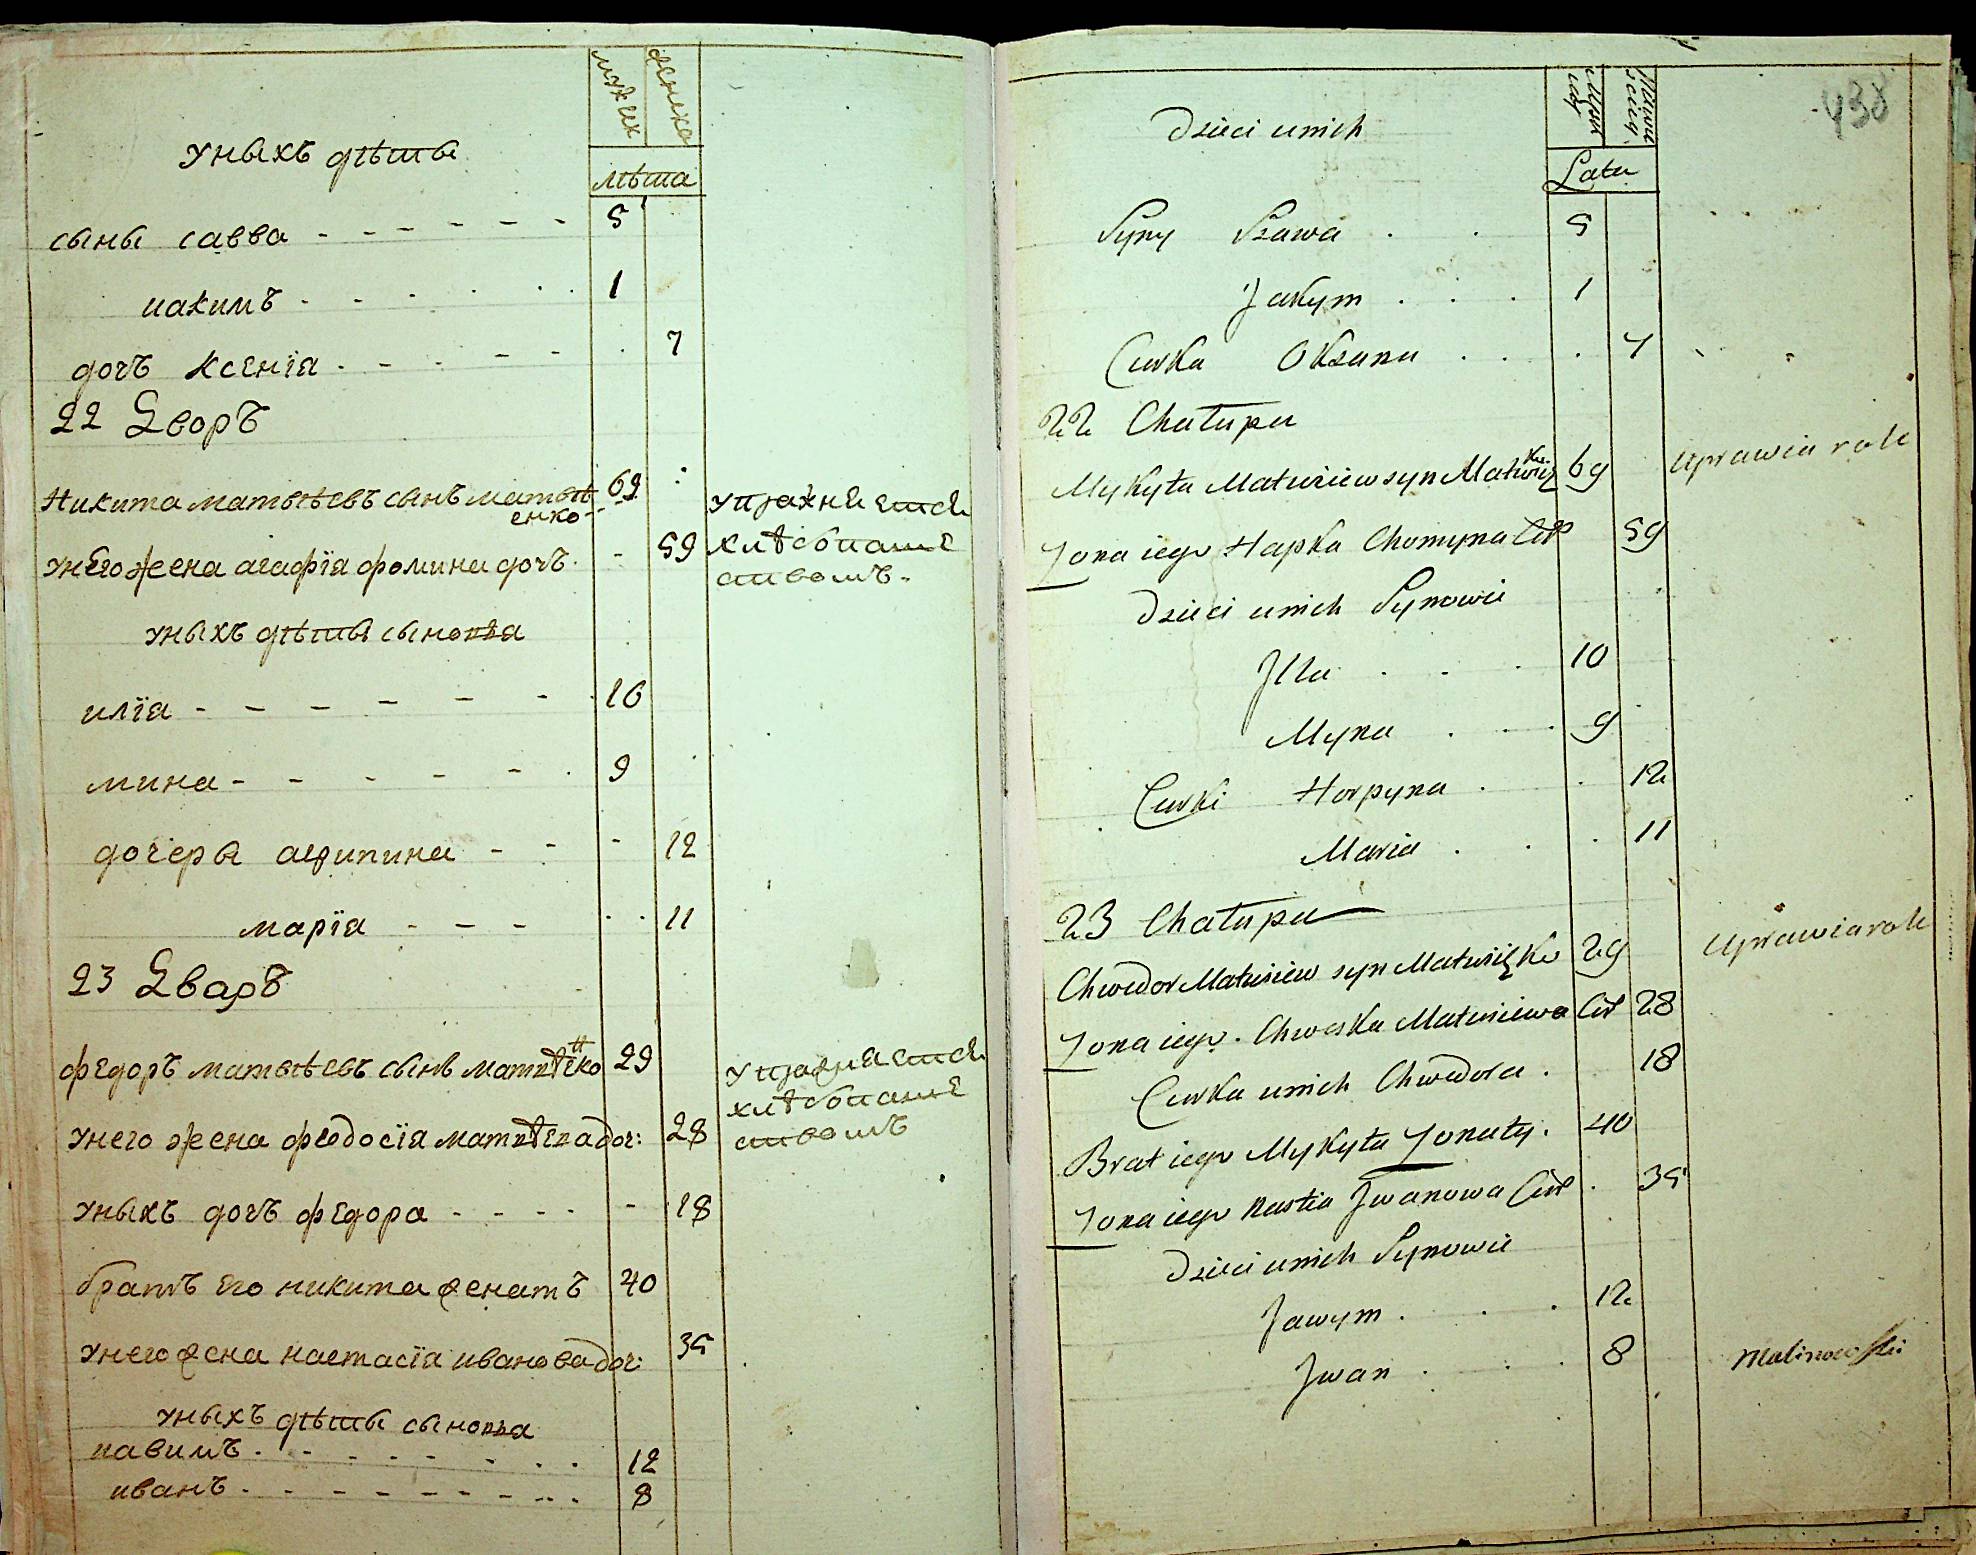 мужск женска
лѣта
уныхъ дѣты
сыны савва 5
иакимъ 1
дочъ ксенїа 7
22 Дворъ
Никита матвѣевъ сынъ матвѣ 69
енко
упражнѣется
хлѣбопаше
ствомъ
унего жена агафїа фомина дочъ 59
уныхъ дѣты сыновя
илїа 10
мина 9
дочеры агрипина 12
марїа 11
23 Дворъ
федоръ матвѣевъ сынъ матвѣенко 29
упражнѣется
хлѣбопаше
ствомъ
унего жена феодосїя матвѣева доч: 28
уныхъ дочъ федора 18
братъ его никита женатъ 40
унего жена настасїа иванова доч: 35
уныхъ дѣты сыновя
иавимъ 12
иванъ 8
438
Latu
Dzieci unich
Syny Szawa 5
Jakym 1
Curka Oksana 7
22 Chatupa
Mykyta Matwiiew syn Matwiiczko 69 Uprawia role
Zona iego Hapka Chomyna Cur 59
Dzieci unich Synowie
Jlla 10
Myna 9
Curki Horpyna 12
Maria 11
23 Chatupa
Chwedor Matwiiew syn Matwiiczko 29 Uprawia role
Zona iego Chweska Matwiiewa Cur 28
Curka unich Chwedora 18
Brat iego Mykyta Zonaty 40
Zona iego Nastia Jwanowa Cur 35
Dzieci unich Synowie
Jawym 12
Jwan 8
Malinowski